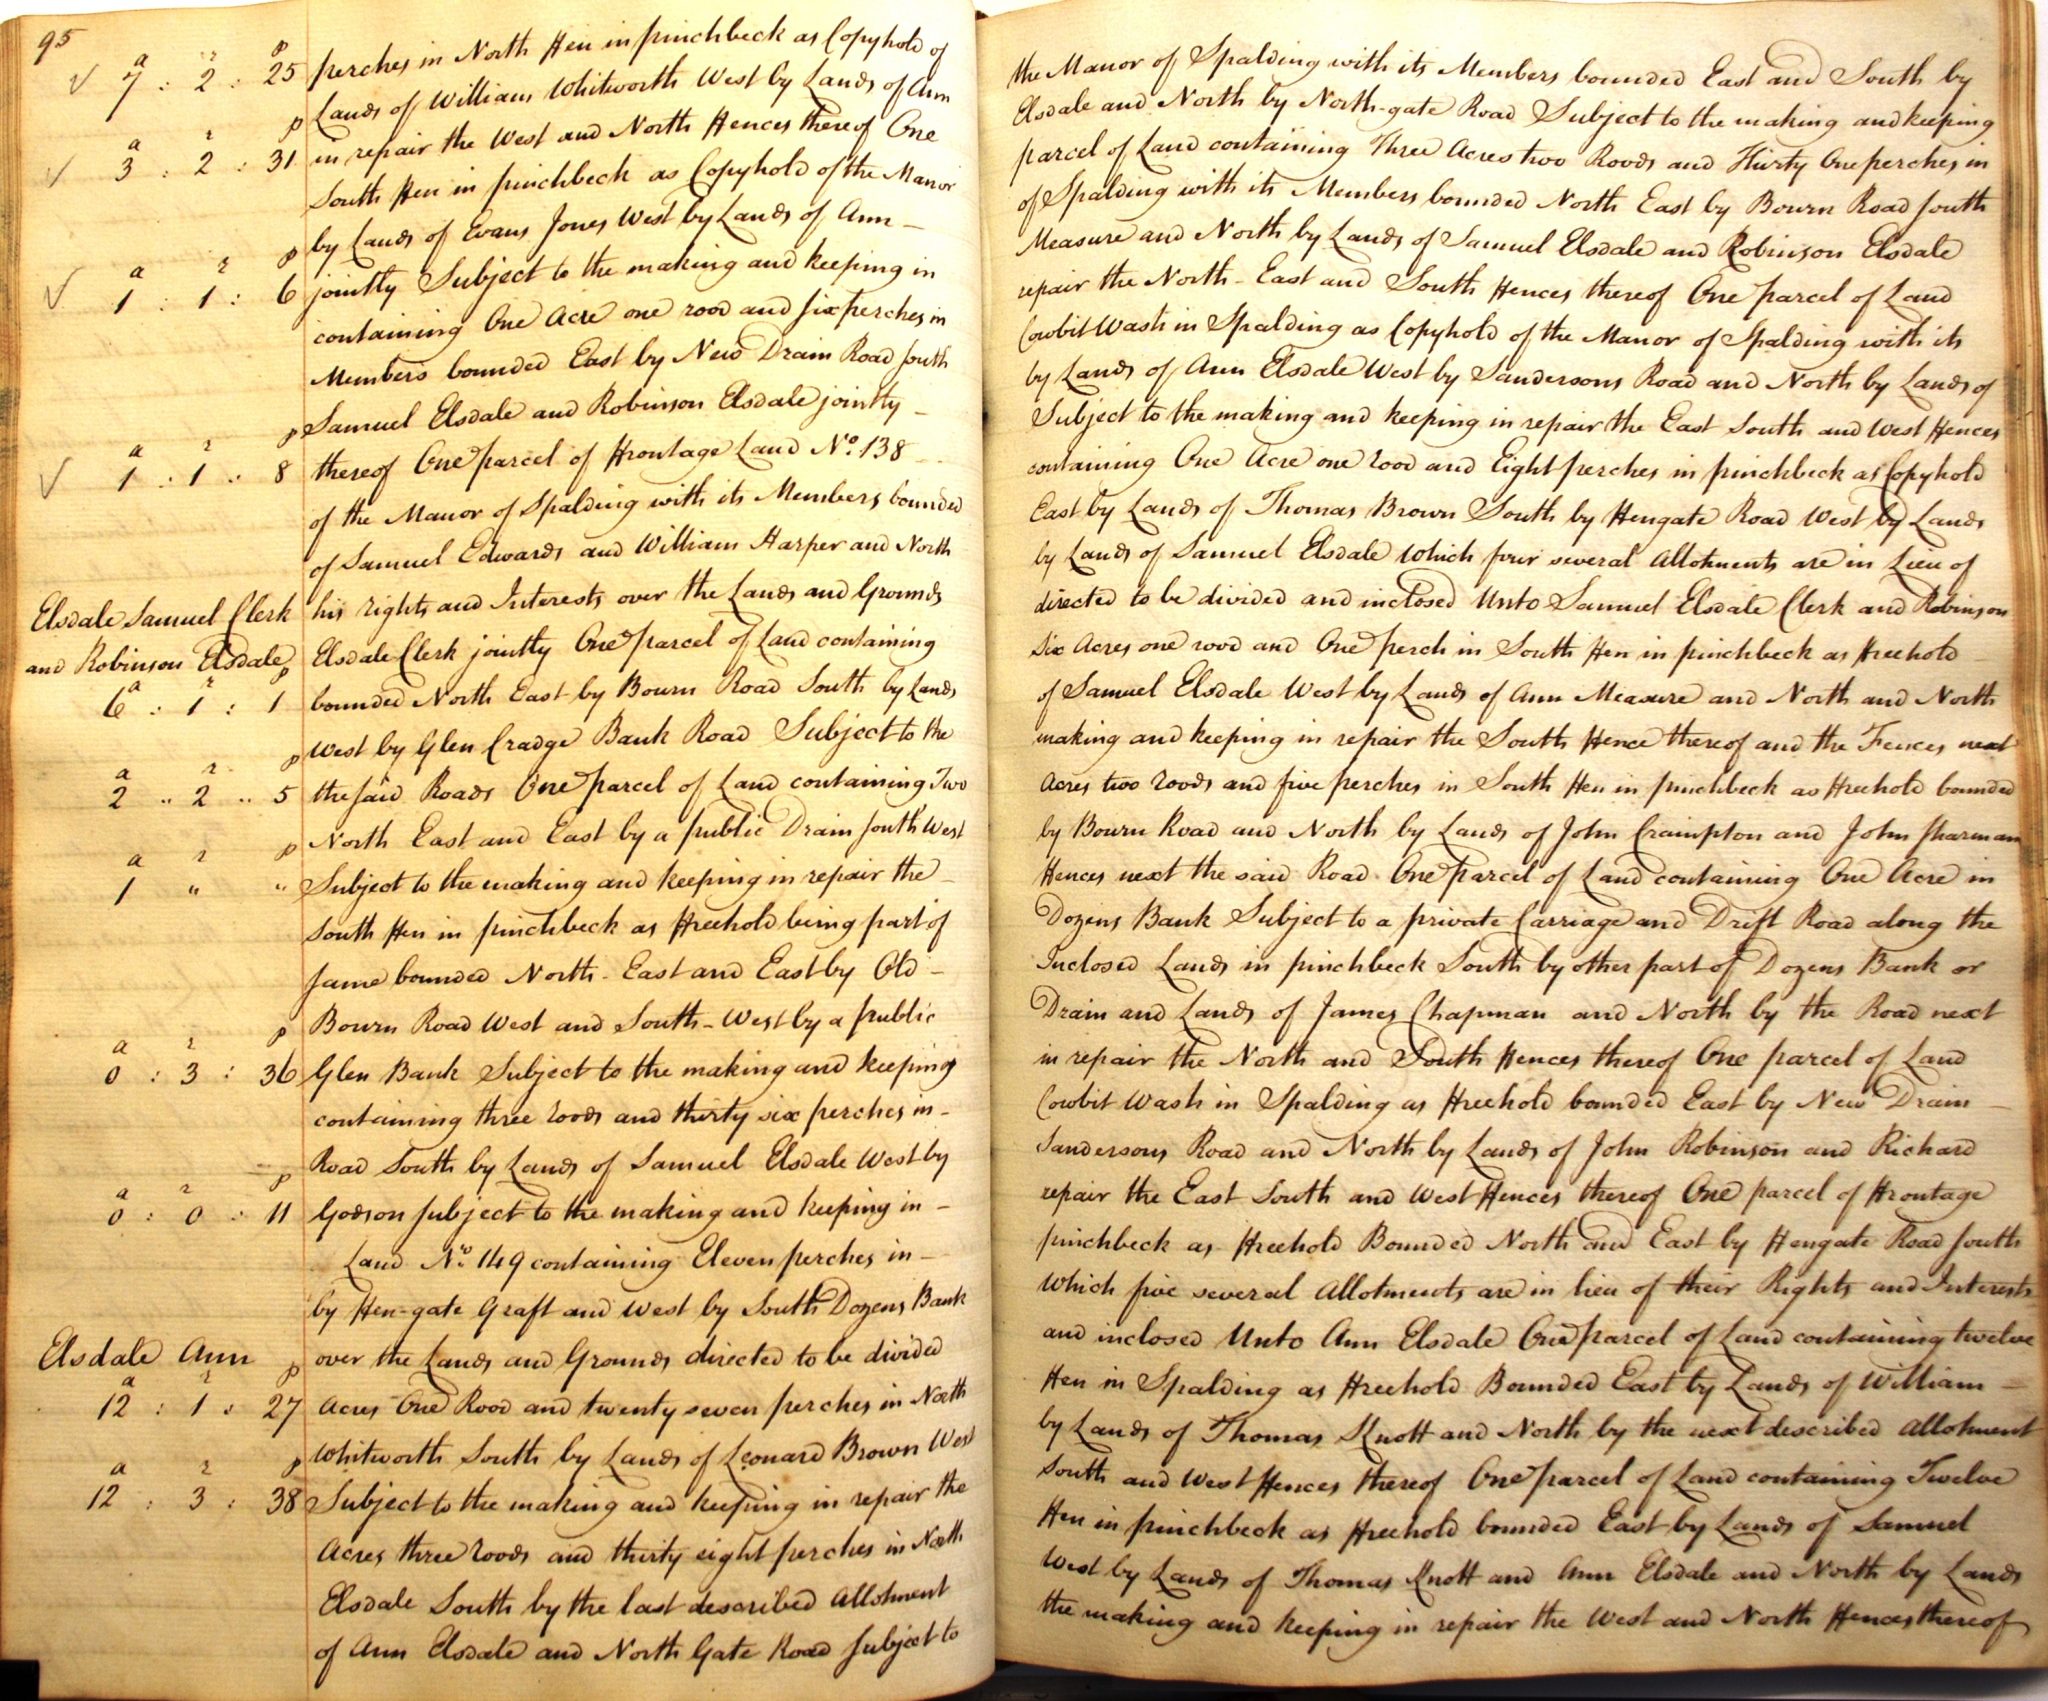 95
a r p
7 : 2 : 25 perches in North Fen in pinchbeck as Copyhold of
the Manor of Spalding with its Members bounded East and South by
Lands of William Whitworth West by Lands of Ann
Elsdale and North by North-gate Road Subject to the making and keeping
a r p
3 : 2 : 31 in repair the West and North Fences thereof One
parcel of Land containing Three Acres two Roods and Thirty One perches in
South Fen in pinchbeck as Copyhold of the Manor
of Spalding with its Members bounded North East by Bourn Road South
by Lands of Evans Jones West by Lands of Ann –
Measure and North by Lands of Samuel Elsdale and Robinson Elsdale
a r p
1 : 1 : 6 jointly Subject to the making and keeping in
repair the North-East and South Fences thereof One parcel of Land
containing One Acre one rood and six perches in
Cowbit Wash in Spalding as Copyhold of the Manor of Spalding with its
Members bounded East by New Drain Road South
by Lands of Ann Elsdale West by Sandersons Road and North by Lands of
Samuel Elsdale and Robinson Elsdale jointly –
Subject to the making and keeping in repair the East South and West Fences
a r p
1 : 1 : 8 thereof One parcel of Frontage Land No. 138
containing One Acre one rood and Eight perches in pinchbeck as Copyhold
of the Manor of Spalding with its Members bounded
East by Lands of Thomas Brown South by Fengate Road West by Lands
of Samuel Edwards and William Harper and North
by Lands of Samuel Elsdale which four several Allotments are in Lieu of
Elsdale Samuel Clerk his rights and Interests over the Lands and Grounds
directed to be divided and inclosed Unto Samuel Elsdale Clerk and Robinson
and Robinson Elsdale Elsdale Clerk jointly One parcel of Land containing
Six Acres one rood and One perch in South Fen in pinchbeck as Freehold
a r p
6 : 1 : 1 bounded North East by Bourn Road South by Lands
of Samuel Elsdale West by Lands of Ann Measure and North and North
West by Glen Cradge Bank Road Subject to the
making and keeping in repair the South Fence thereof and the Fences next
a r p
2 .. 2 .. 5 the said Roads One parcel of Land containing Two
Acres two roods and five perches in South Fen in pinchbeck as Freehold bounded
North East and East by a public Drain South West
by Bourn Road and North by Lands of John Crampton and John Sharman
a r p
1 " " Subject to the making and keeping in repair the
Fences next the said Road One parcel of Land containing One Acre in
South Fen in pinchbeck as Freehold being part of
Dozens Bank Subject to a private Carriage and Drift Road along the
same bounded North-East and East by Old –
Inclosed Lands in pinchbeck South by other part of Dozens Bank or
Bourn Road West and South-West by a public
Drain and Lands of James Chapman and North by the Road next
a r p
0 : 3 : 36 Glen Bank Subject to the making and keeping
in repair the North and South Fences thereof One parcel of Land
containing three roods and thirty six perches in –
Cowbit Wash in Spalding as Freehold bounded East by New Drain
Road South by Lands of Samuel Elsdale West by
Sandersons Road and North by Lands of John Robinson and Richard
a r p
0 : 0 : 11 Godson subject to the making and keeping in –
repair the East South and West Fences thereof One parcel of Frontage
Land No. 149 containing Eleven perches in –
pinchbeck as Freehold Bounded North and East by Fengate Road South
by Fen-gate Graft and West by South Dozens Bank
Which five several Allotments are in lieu of their Rights and Interests
Elsdale Ann over the Lands and Grounds directed to be divided
and inclosed Unto Ann Elsdale One parcel of Land containing twelve
a r p
12 : 1 : 27 Acres One Rood and twenty seven perches in North
Fen in Spalding as Freehold Bounded East by Lands of William –
Whitworth South by Lands of Leonard Brown West
by Lands of Thomas Knott and North by the next described Allotment
a r p
12 : 3 : 38 Subject to the making and keeping in repair the
South and West Fences thereof One parcel of Land containing Twelve
Acres three roods and thirty eight perches in North
Fen in pinchbeck as Freehold bounded East by Lands of Samuel
Elsdale South by the last described Allotment
West by Lands of Thomas Knott and Ann Elsdale and North by Lands
of Ann Elsdale and North Gate Road Subject to
the making and keeping in repair the West and North Fences thereof